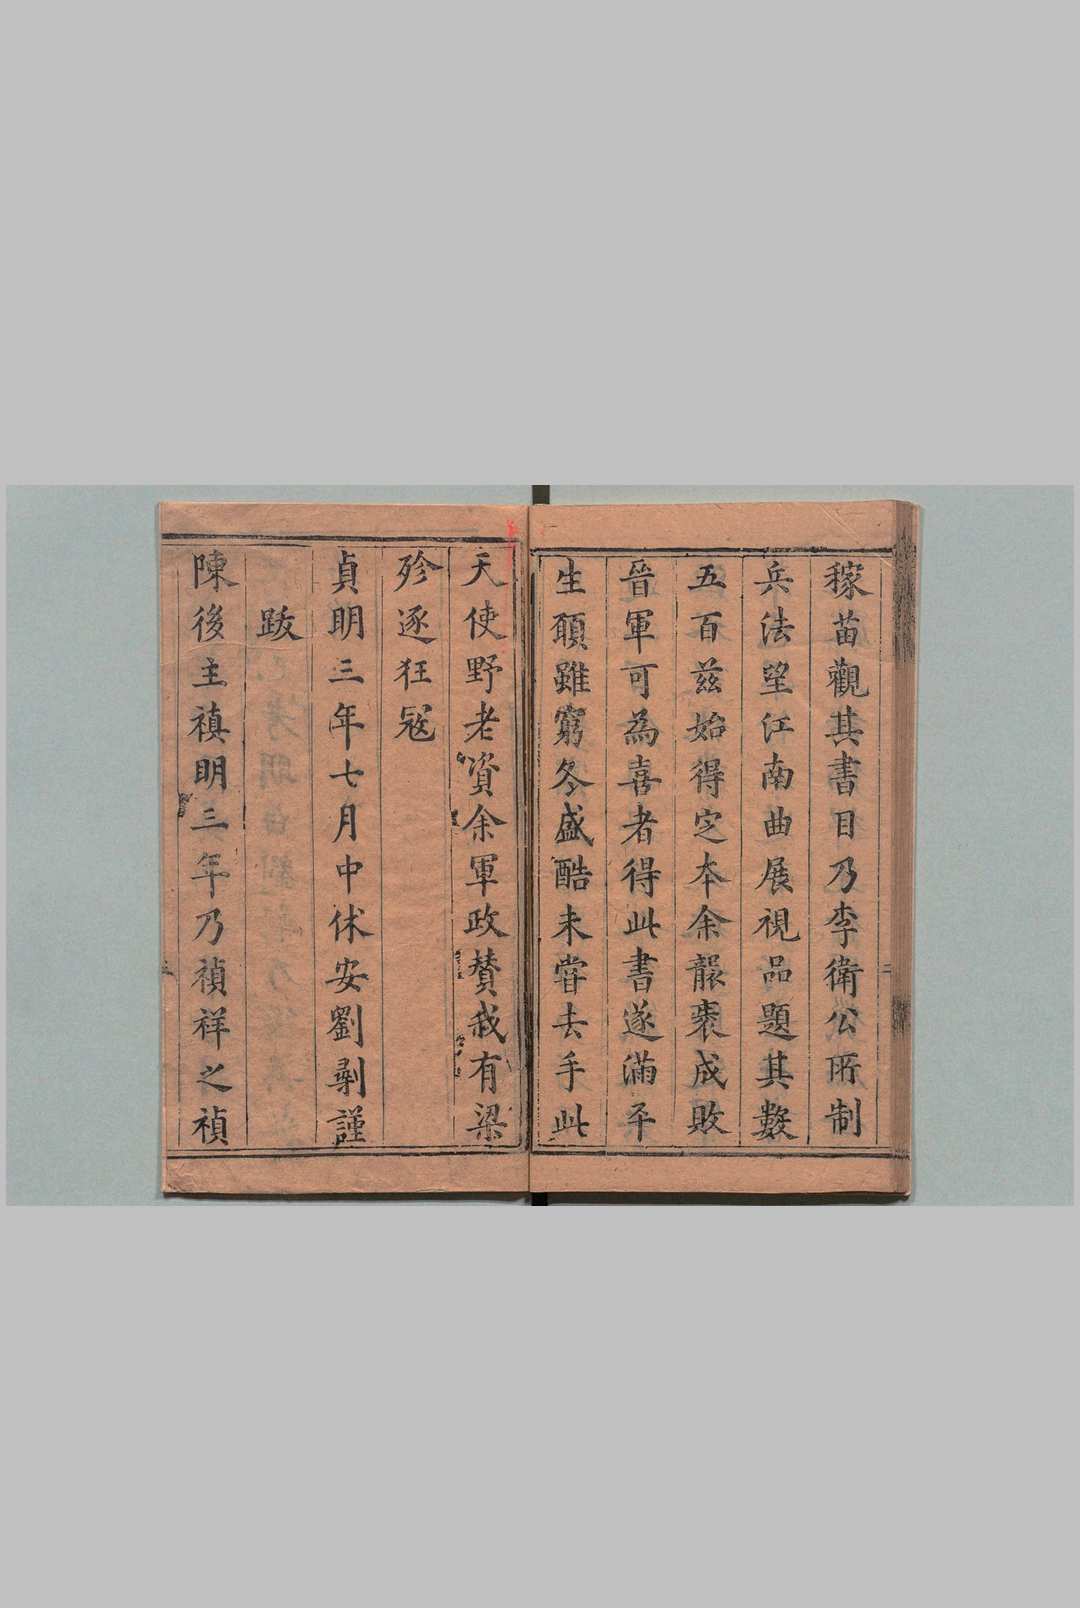 稼苗觀其書目乃李衛公所制
兵法望江南曲展視品題其數
五百兹始得定本余龯褁成敗
晉軍可為喜者得此書遂滿平
生願雖窮冬盛酷未甞去手此
天使野老資余軍政賛我有梁
殄逐狂冦
貞明三年七月中伏安劉鄩謹
跋
陳後主禎明三年乃禎祥之禎